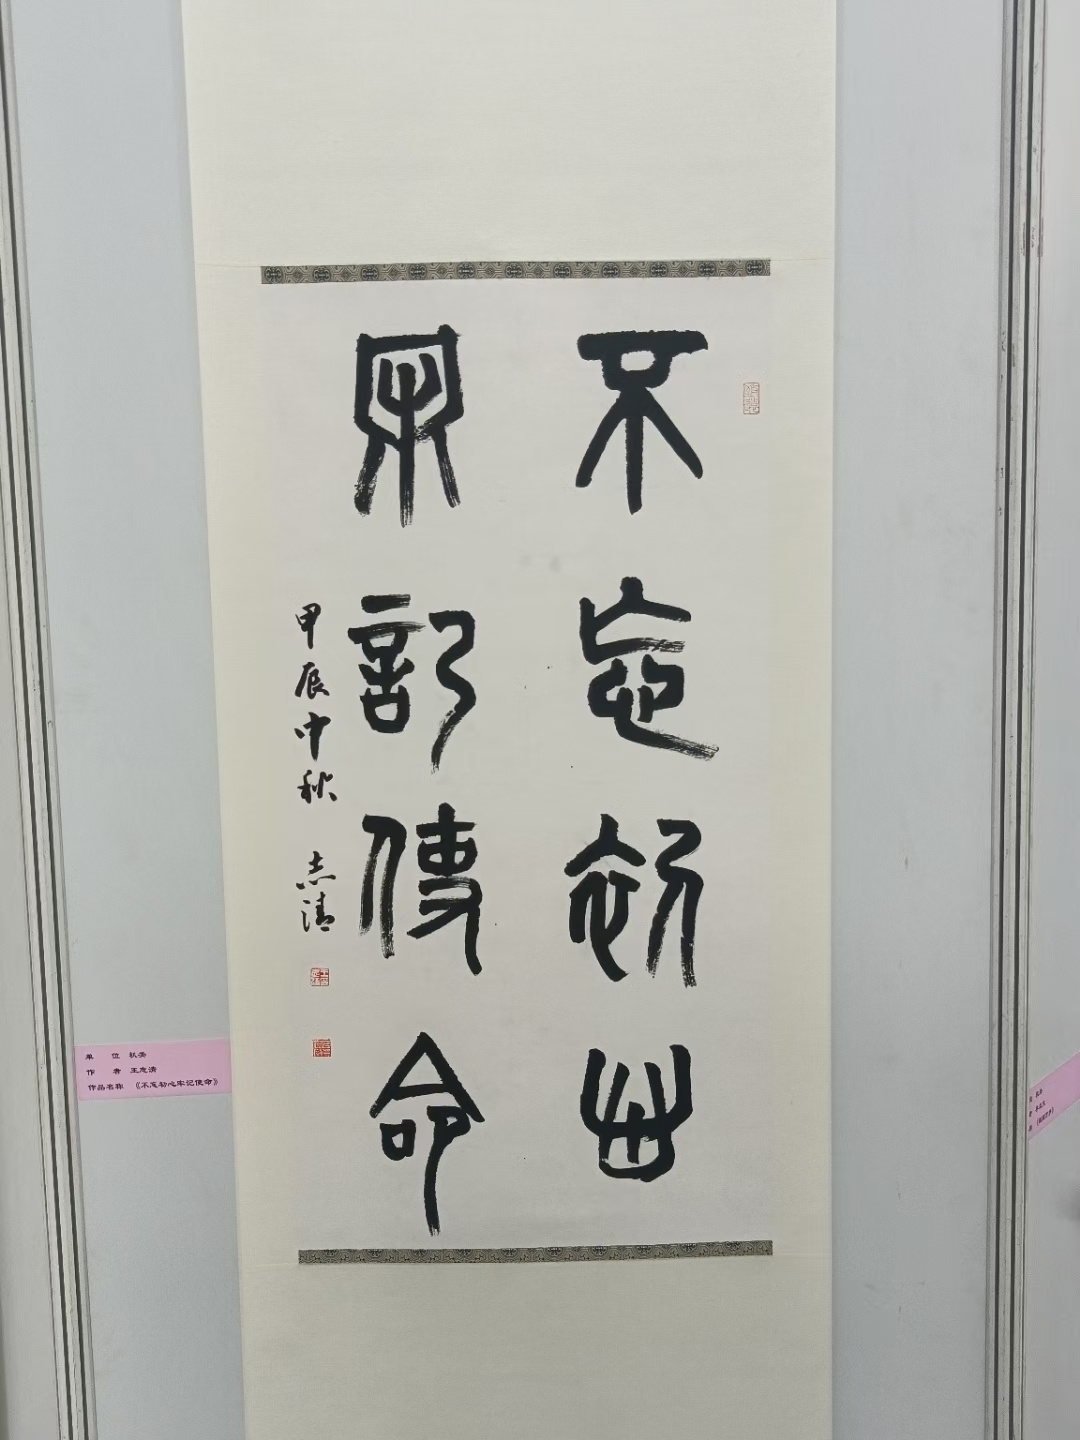 不忘初心
牢記使命
甲辰中秋 志清
单 位 机关
作 者 王志清
作品名称 《不忘初心牢记使命》